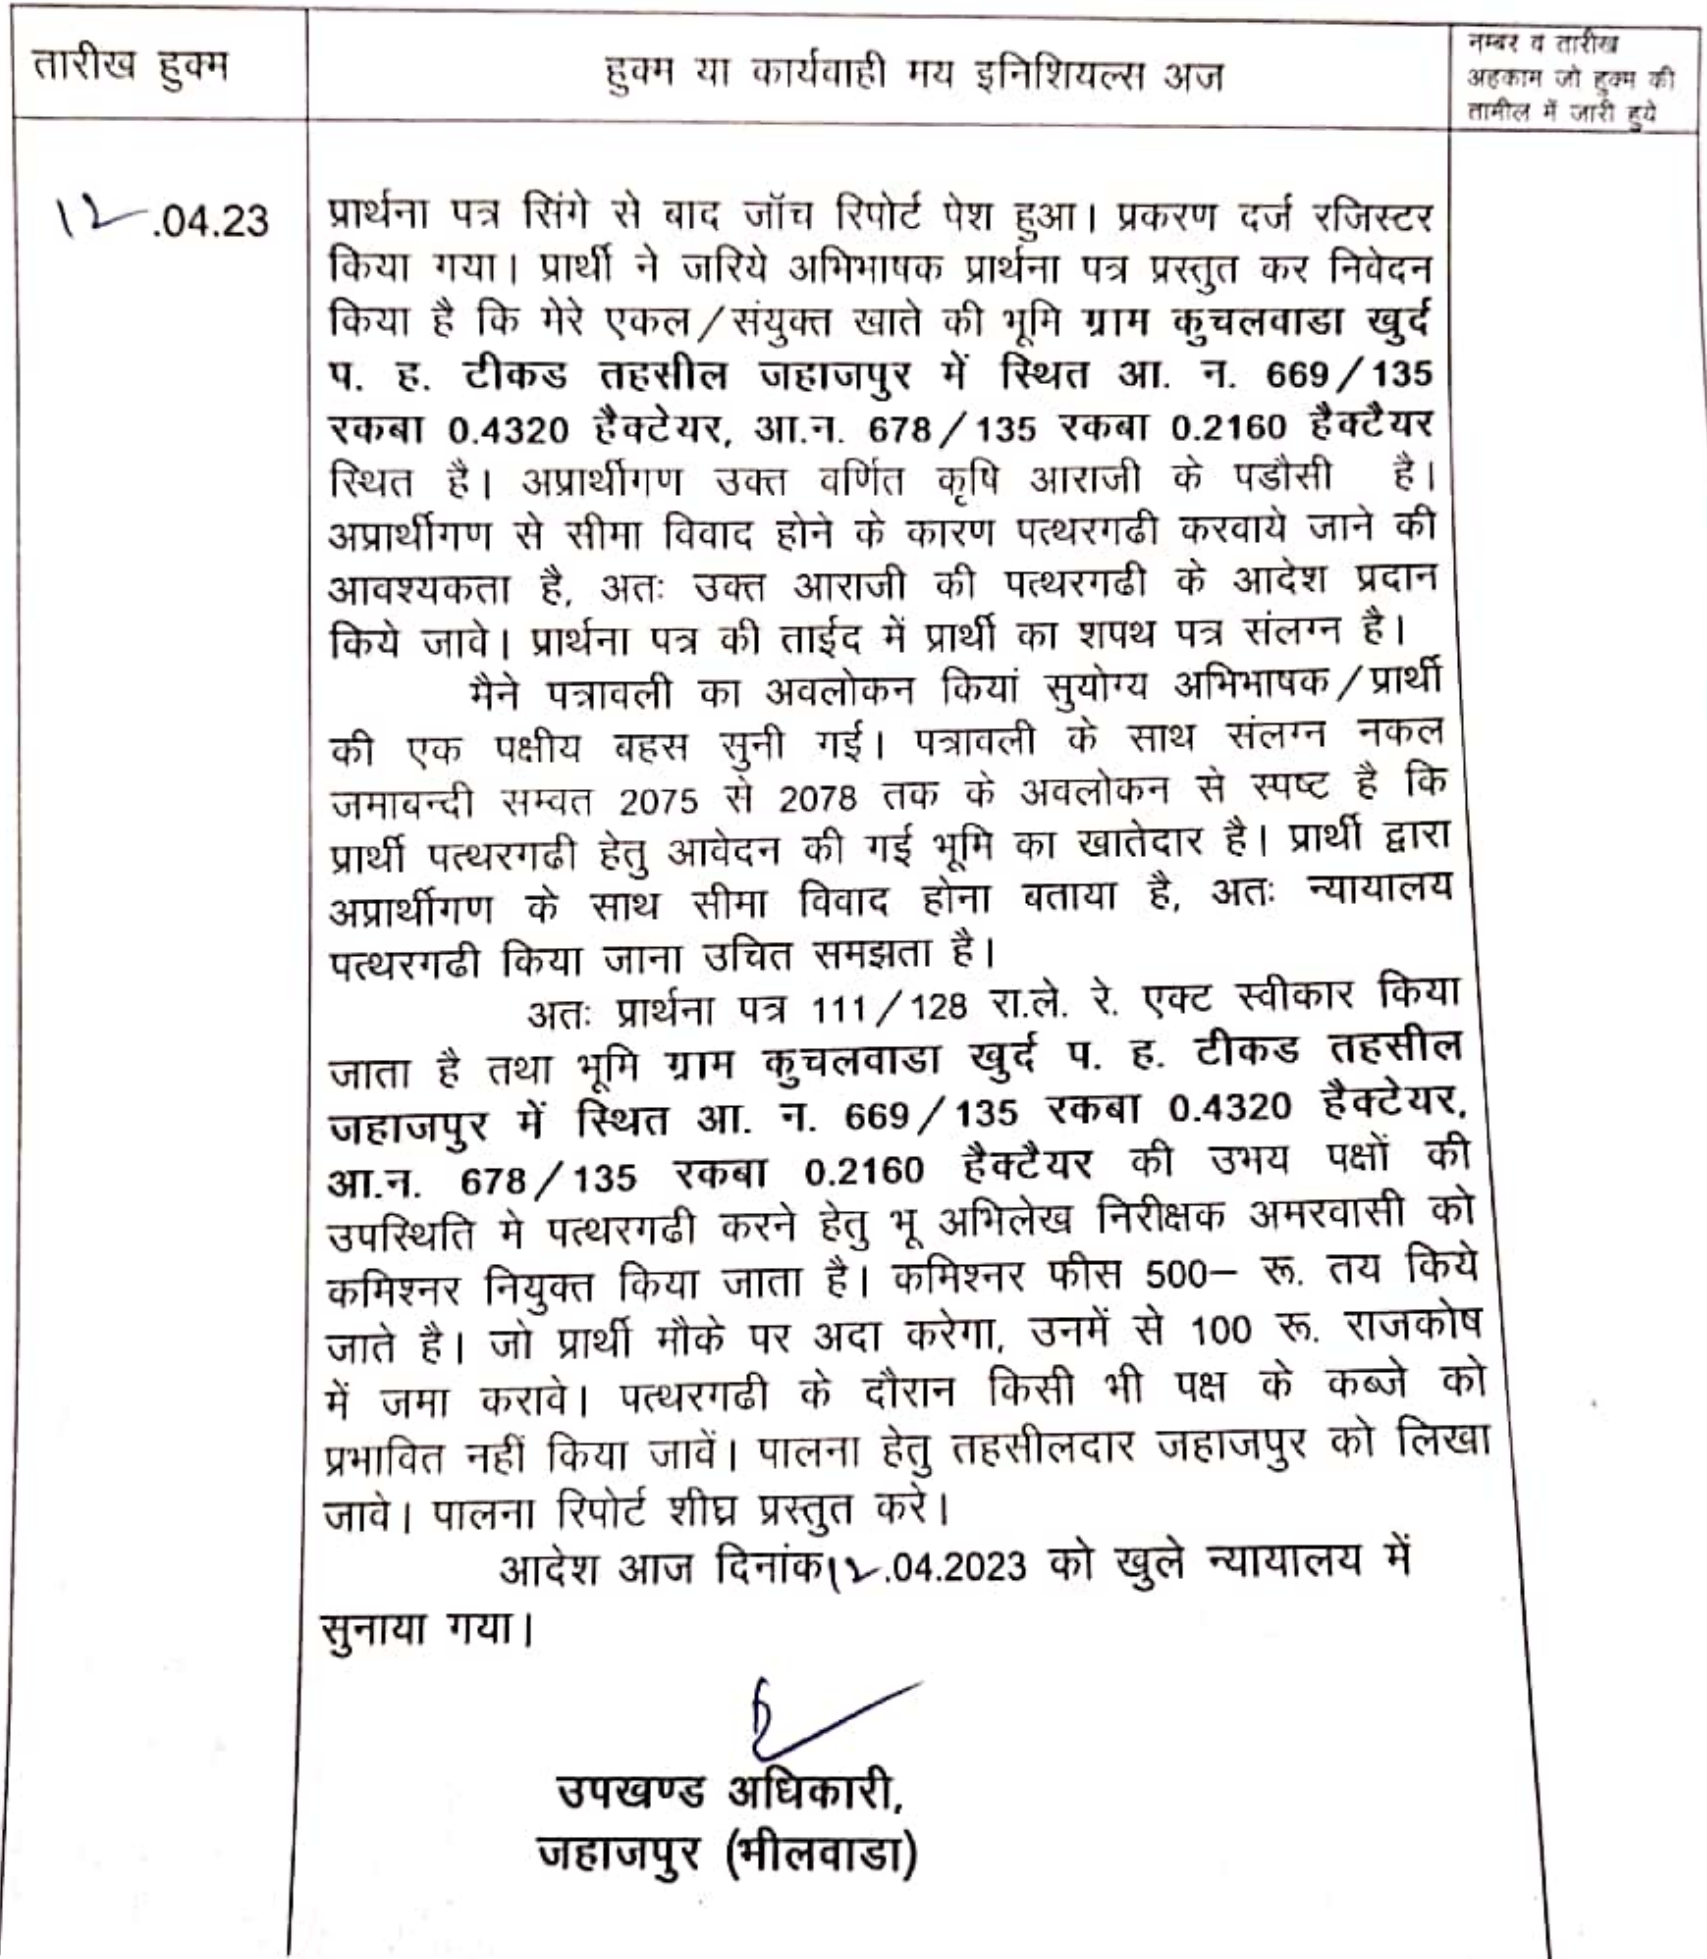 तारीख हुक्म
हुक्म या कार्यवाही मय इनिशियल्स अज
नम्बर व तारीख
अहकाम जो हुक्म की
तामील में जारी हुये
12.04.23
प्रार्थना पत्र सिंगे से बाद जॉच रिपोर्ट पेश हुआ। प्रकरण दर्ज रजिस्टर
किया गया। प्रार्थी ने जरिये अभिभाषक प्रार्थना पत्र प्रस्तुत कर निवेदन
किया है कि मेरे एकल/संयुक्त खाते की भूमि ग्राम कुचलवाडा खुर्द
प. ह. टीकड तहसील जहाजपुर में स्थित आ. न. 669/135
रकबा 0.4320 हैक्टेयर, आ.न. 678/135 रकबा 0.2160 हैक्टैयर
स्थित है। अप्रार्थीगण उक्त वर्णित कृषि आराजी के पडौसी है।
अप्रार्थीगण से सीमा विवाद होने के कारण पत्थरगढी करवाये जाने की
आवश्यकता है, अतः उक्त आराजी की पत्थरगढी के आदेश प्रदान
किये जावे। प्रार्थना पत्र की ताईद में प्रार्थी का शपथ पत्र संलग्न है।
मैने पत्रावली का अवलोकन कियां सुयोग्य अभिभाषक/प्रार्थी
की एक पक्षीय बहस सुनी गई। पत्रावली के साथ संलग्न नकल
जमाबन्दी सम्वत 2075 से 2078 तक के अवलोकन से स्पष्ट है कि
प्रार्थी पत्थरगढी हेतु आवेदन की गई भूमि का खातेदार है। प्रार्थी द्वारा
अप्रार्थीगण के साथ सीमा विवाद होना बताया है, अतः न्यायालय
पत्थरगढी किया जाना उचित समझता है।
अतः प्रार्थना पत्र 111/128 रा.ले. रे. एक्ट स्वीकार किया
जाता है तथा भूमि ग्राम कुचलवाडा खुर्द प. ह. टीकड तहसील
जहाजपुर में स्थित आ. न. 669/135 रकबा 0.4320 हैक्टेयर,
आ.न. 678/135 रकबा 0.2160 हैक्टैयर की उभय पक्षों की
उपस्थिति मे पत्थरगढी करने हेतु भू अभिलेख निरीक्षक अमरवासी को
कमिश्नर नियुक्त किया जाता है। कमिश्नर फीस 500– रू. तय किये
जाते है। जो प्रार्थी मौके पर अदा करेगा, उनमें से 100 रू. राजकोष
में जमा करावे। पत्थरगढी के दौरान किसी भी पक्ष के कब्जे को
प्रभावित नहीं किया जावें। पालना हेतु तहसीलदार जहाजपुर को लिखा
जावे। पालना रिपोर्ट शीघ्र प्रस्तुत करे।
आदेश आज दिनांक12.04.2023 को खुले न्यायालय में
सुनाया गया।
उपखण्ड अधिकारी,
जहाजपुर (भीलवाडा)